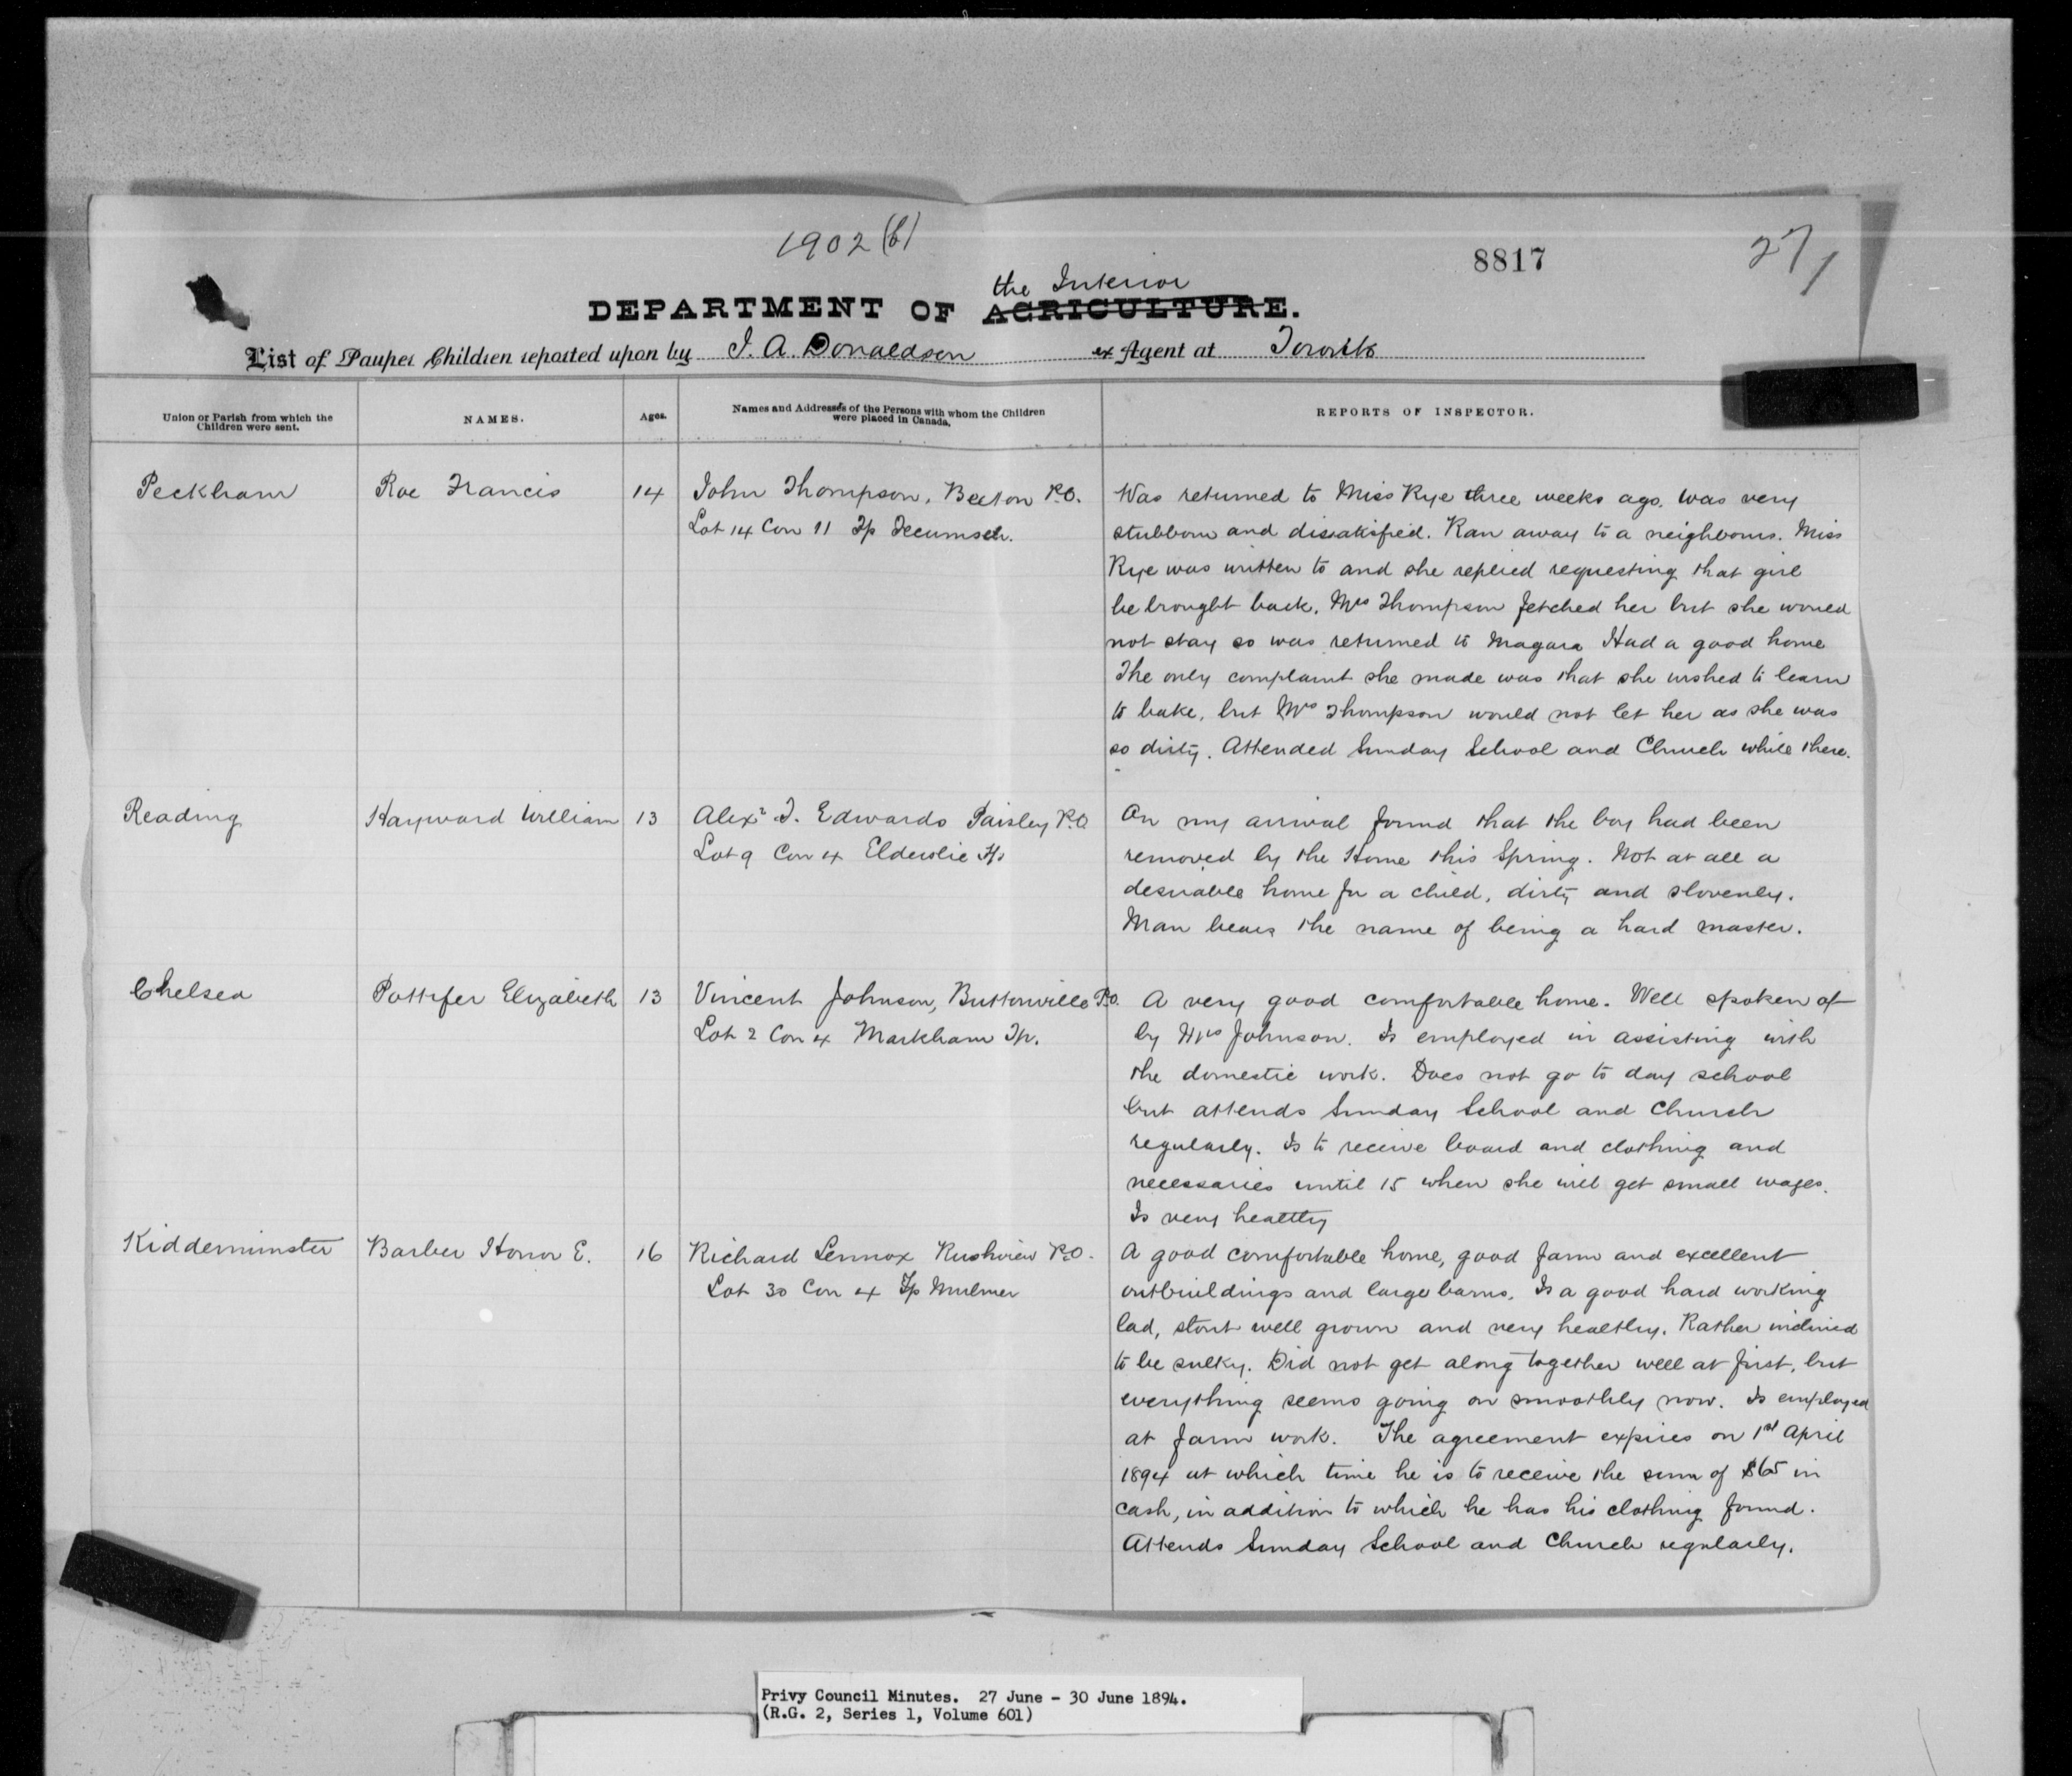 1902 (b)
8817
27/1
the Interior
DEPARTMENT OF AGRICULTURE.
List of Pauper Children reported upon by J. A. Donaldson ex Agent at Toronto
Union or Parish from which the Children were sent.
NAMES.
Ages.
Names and Addresses of the Persons with whom the Children were placed in Canada.
REPORTS OF INSPECTOR.
Peckham
Roe Francis
14
John Thompson, Beeton P.O.
Lot 14 Con 11 Tp Tecumseh.
Was returned to Miss Rye three weeks ago. Was very
stubborn and dissatisfied. Ran away to a neighbours. Miss
Rye was written to and she replied requesting that girl
be brought back. Mrs Thompson fetched her but she would
not stay so was returned to Niagara Had a good home
The only complaint she made was that she wished to learn
to bake, but Mrs Thompson would not let her as she was
so dirty. Attended Sunday School and Church while there.
Reading
Hayward William
13
Alexr T. Edwards Paisley P.O.
Lot 9 Con 4 Elderslie Tp
On my arrival found that the boy had been
removed by the Home this Spring. Not at all a
desirable home for a child, dirty and slovenly.
Man bears the name of being a hard master.
Chelsea
Pottifer Elizabeth
13
Vincent Johnson, Buttonville P.O.
Lot 2 Con 4 Markham Tp.
A very good comfortable home. Well spoken of
by Mrs Johnson. Is employed in assisting with
the domestic work. Does not go to day school
but attends Sunday School and Church
regularly. Is to receive board and clothing and
necessaries until 15 when she will get small wages.
Is very healthy
Kidderminster
Barber Honor E.
16
Richard Lennox Rushview P.O.
Lot 30 Con 4 Tp Mulmer
A good comfortable home, good farm and excellent
outbuildings and large barns. Is a good hard working
lad, stout well grown and very healthy. Rather inclined
to be sulky. Did not get along together well at first, but
everything seems going on smoothly now. Is employed
at farm work. The agreement expires on 1st April
1894 at which time he is to receive the sum of $65 in
cash, in addition to which he has his clothing found.
Attends Sunday School and Church regularly.
Privy Council Minutes. 27 June - 30 June 1894.
(R.G. 2, Series 1, Volume 601)